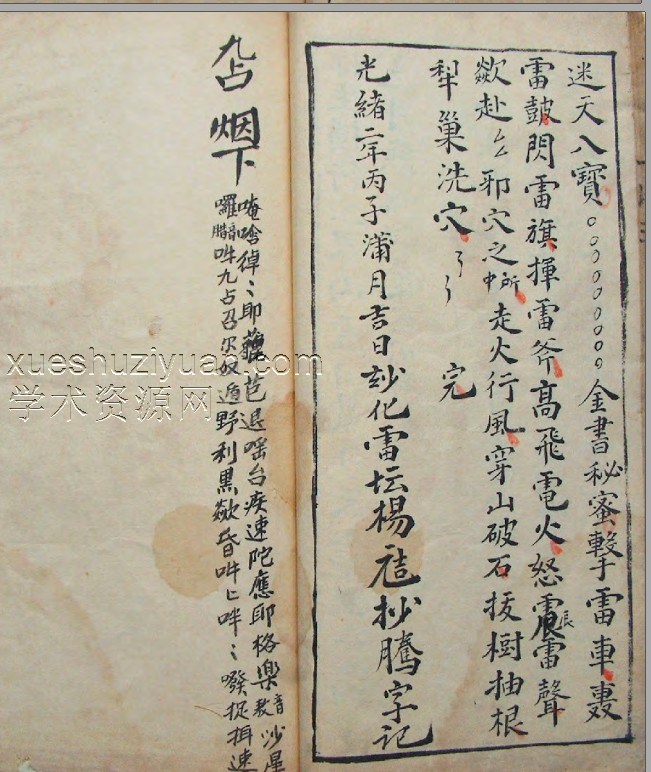 迷天八寶。。。。。。。。。金書秘蜜擊雷車轟
雷鼓閃雷旗揮雷斧高飛電火怒震雷聲
辰
欻赴厶厶邪穴之所中走火行風穿山破石拔樹抽根
犁巢洗穴 完
光緒二年丙子蒲月吉日玅化雷坛楊 抄騰字記
九占烟下
唵唅倬〻耶 芭退 台疾速陀應耶格樂 沙星
囉 吽九占召尔奴遁野利黒欻昏吽匕吽〻發捉揖速
xueshuziyuan.com
学术资源网